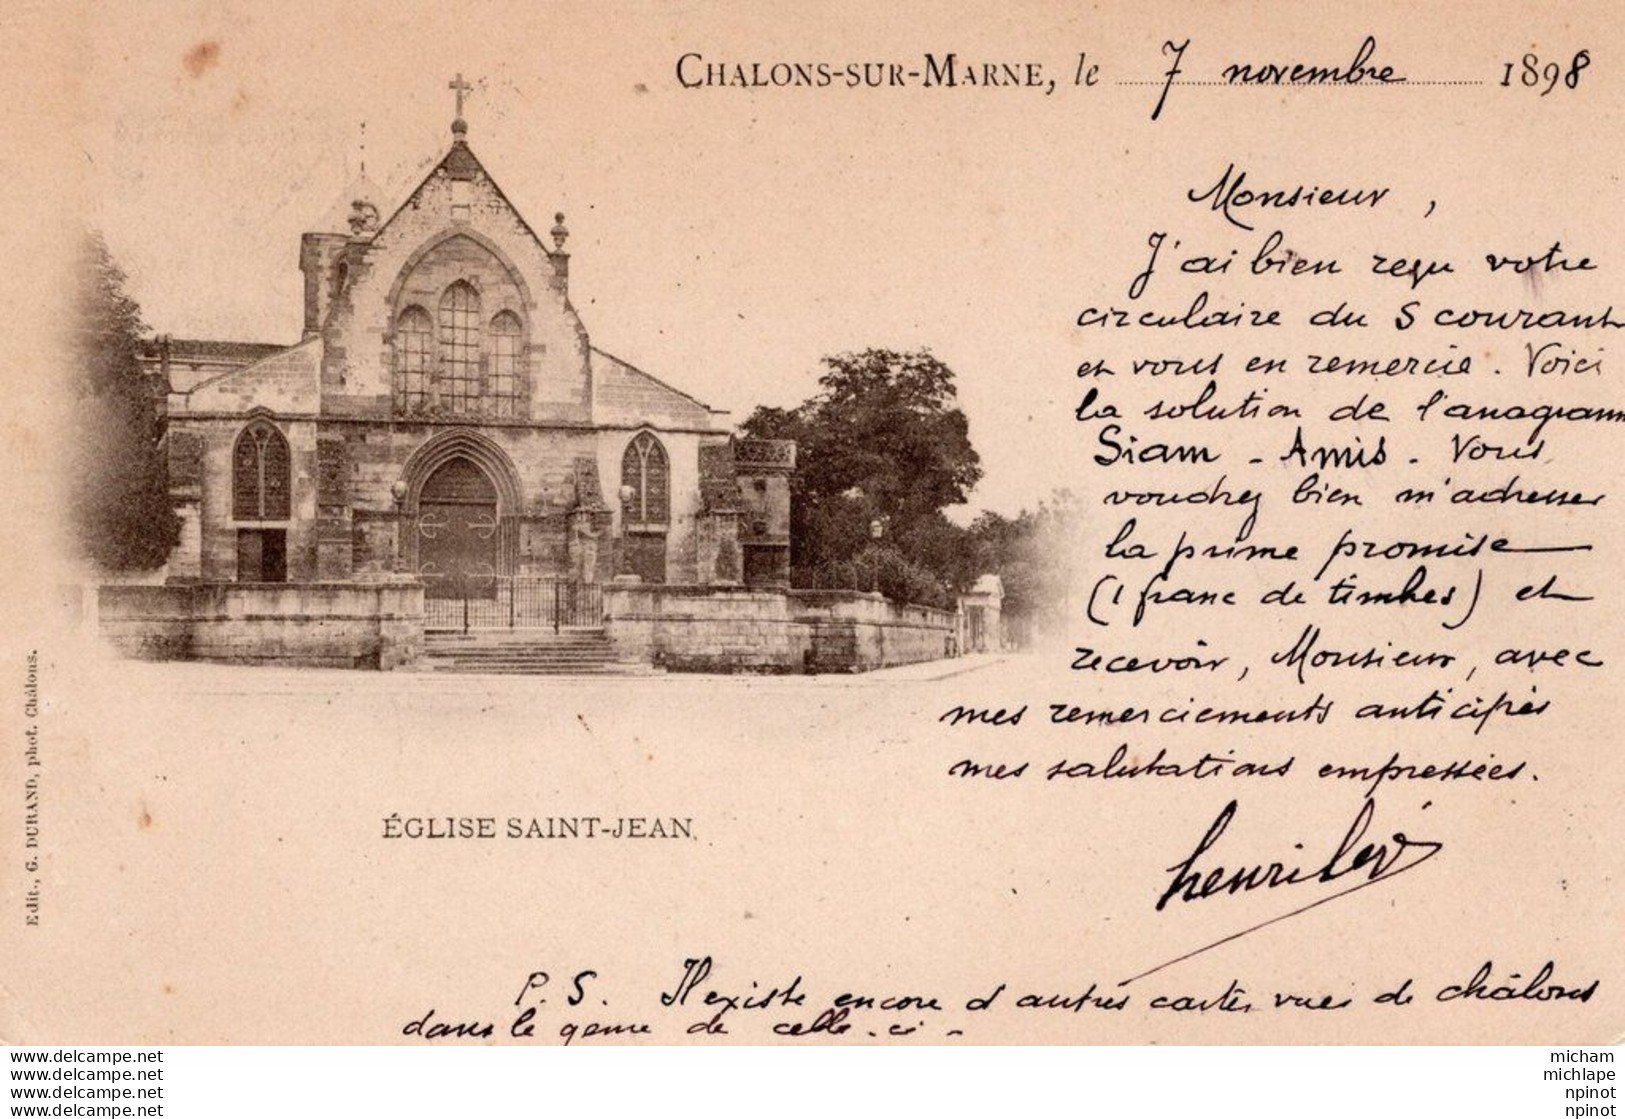 CHALONS-SUR-MARNE, le 7 novembre 1898
Monsieur,
J'ai bien reçu votre
circulaire du 5 courant
et vous en remercie. Voici
la solution de l'anagramm
Siam - Amis. Vous
voudrez bien m'adresser
la prime promise
(1 franc de timbres) et
recevoir, Monsieur, avec
mes remerciements anticipés
mes salutations empressées.
henri
ÉGLISE SAINT-JEAN.
P. S. Il existe encore d'autres cartes vues de châlons
dans le genre de celle-ci -
Edit., G. DURAND, phot. Châlons.
www.delcampe.net
www.delcampe.net
www.delcampe.net
www.delcampe.net
micham
michlape
npinot
npinot